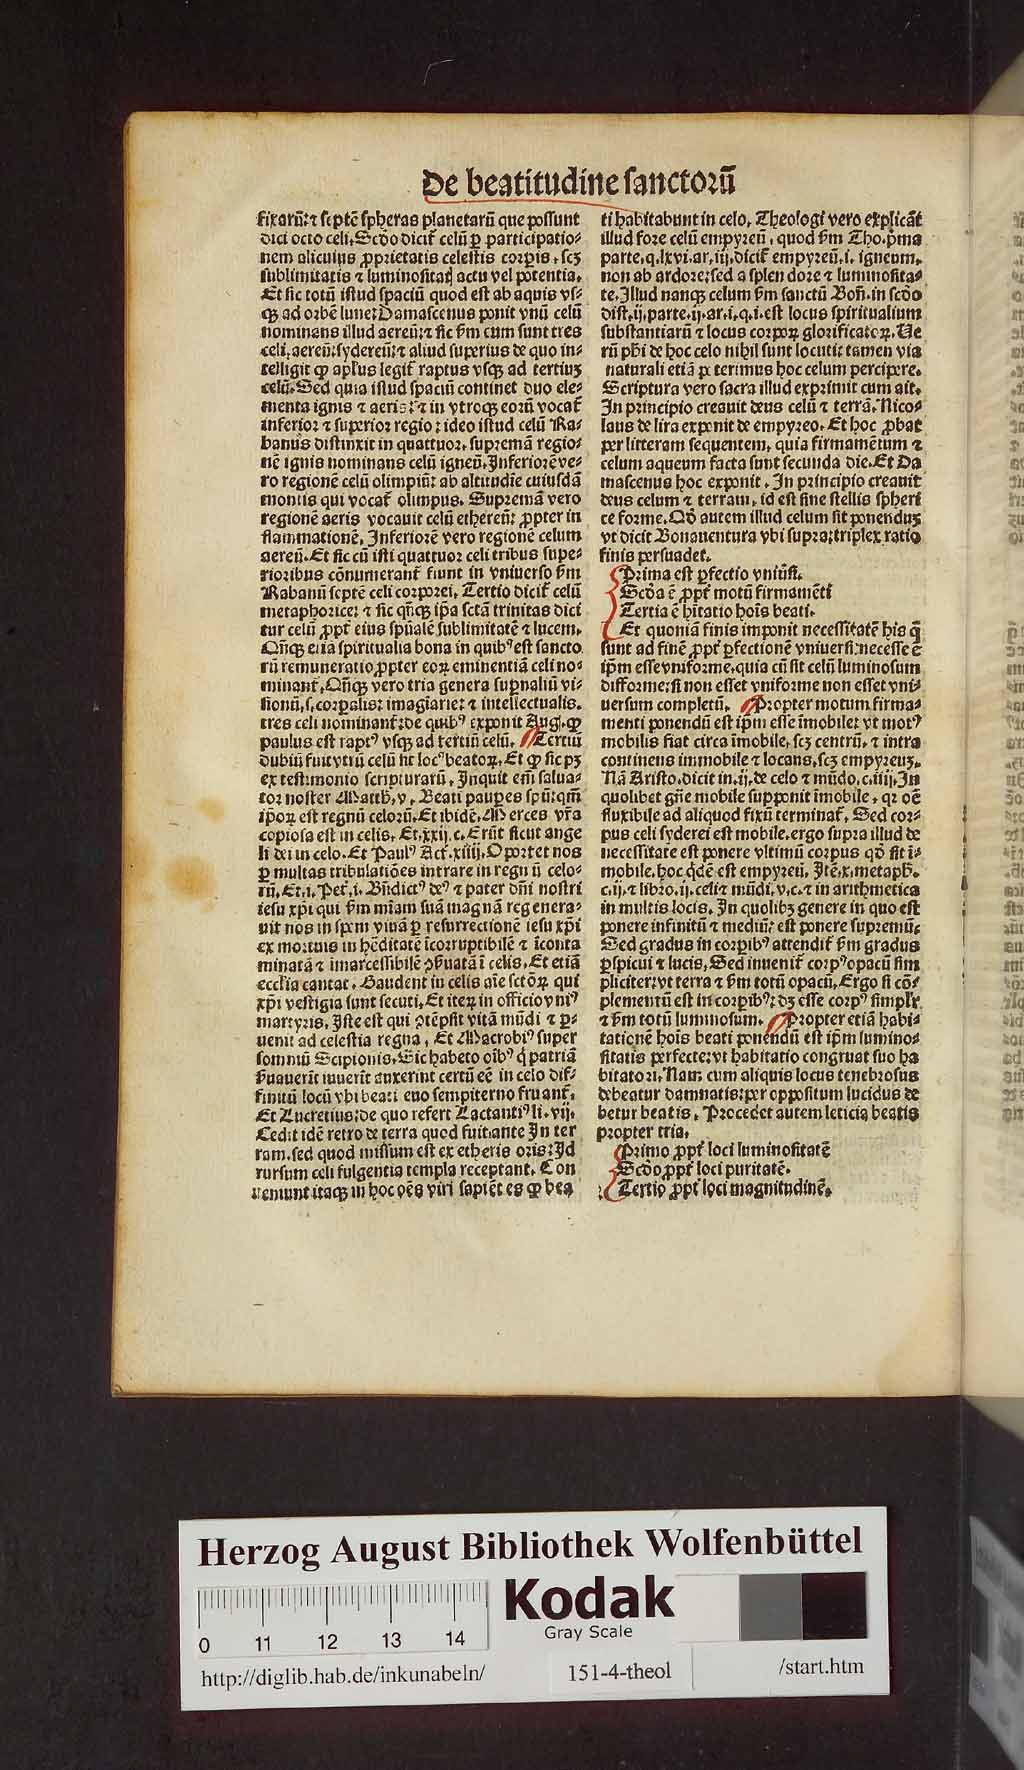 De beatitudine sanctorū
fixarū: ⁊ septē spheras planetarū que possunt
dici octo celi. Scďo dicit᷑ celū ꝑ participatio-
nem alicuius ꝓprietatis celestis corꝑis, scꝫ
sublimitatis ⁊ luminositat᷒ actu vel potentia.
Et sic totū istud spaciū quod est ab aquis vs-
qꝫ ad orbē lune: Damascenus ponit vnū celū
nominans illud aereū: ⁊ sic ẜm eum sunt tres
celi. aereū: sydereū: ⁊ aliud superius de quo in-
telligit ꝙ apl'us legit᷑ raptus vsqꝫ ad tertiuꝫ
celū. Sed quia istud spaciū continet duo ele-
menta ignis ⁊ aeris: ⁊ in vtroqꝫ eorū vocat᷑
inferior ⁊ superior regio: ideo istud celū Ra-
banus distinxit in quattuor. supremā regio-
nē ignis nominans celū igneū. Inferiorē ve-
ro regionē celū olimpiū: ab altitudie cuiusdā
montis qui vocat᷑ olimpus. Supremā vero
regionē aeris vocauit celū ethereū: ꝓpter in
flammationē. Inferiorē vero regionē celum
aereū. Et sic cū isti quattuor celi tribus supe-
rioribus cōnumerant᷑ fiunt in vniuerso ẜm
Rabanū septē celi corporei. Tertio dicit᷑ celū
metaphorice: ⁊ sic qn̄qꝫ ip̄a sctā trinitas dici
tur celū ꝓpt᷑ eius spūalē sublimitatē ⁊ lucem.
Qn̄qꝫ etia spiritualia bona in quibꝰ est sancto
rū remuneratio ꝓpter eoꝝ eminentiā celi no-
minant᷑. Qn̄qꝫ vero tria genera suꝑnaliū vi-
sionū, s. corꝑalis: imagiarie: ⁊ intellectualis.
tres celi nominant᷑: de quibꝰ exponit Aug. ꝙ
paulus est raptꝰ vsqꝫ ad tertiū celū. Tertiū
dubiū fuit vtrū celū sit locꝰ beatoꝝ. Et ꝙ sic pꝫ
ex testimonio scripturarū. Inquit em̄ salua-
tor noster Matth. v. Beati pauꝑes spū: qm̄
ip̄oꝝ est regnū celorū. Et ibidē. Merces vr̄a
copiosa est in celis. Et. xxij. c. Erūt sicut ange
li dei in celo. Et Paulꝰ Act᷑. xiiij. Oportet nos
ꝑ multas tribulatiōes intrare in regnū celo-
rū. Et. i. Pet᷑. i. Bn̄dictꝰ deꝰ ⁊ pater dn̄i nostri
iesu xp̄i qui ẜm mīam suā magnā regenera-
uit nos in spem viuā ꝑ resurrectionē iesu xp̄i
ex mortuis in hēditatē īcorruptibilē ⁊ īconta
minatā ⁊ imarcessibilē ↄẜuatā ī celis. Et etiā
eccl̄ia cantat. Gaudent in celis aīe sctōꝝ qui
xp̄i vestigia sunt secuti. Et iteꝝ in officio vniꝰ
martyris. Iste est qui ↄtēpsit vitā mūdi ⁊ ꝑ-
uenit ad celestia regna. Et Macrobiꝰ super
somniū Scipionis. Sic habeto oībꝰ q̇ patriā
ẜuauerīt iuuerīt auxerint certū eē in celo dif-
finitū locū vbi beati euo sempiterno fruant᷑.
Et Lucretius: de quo refert Lactantiꝰ li. vij.
Cedit idē retro de terra quod fuit ante In ter
ram. sed quod missum est ex etheris oris: Id
rursum celi fulgentia templa receptant. Con
ueniunt itaqꝫ in hoc oēs viri sapiētes ꝙ bea
ti habitabunt in celo. Theologi vero explicāt
illud fore celū empyreū, quod ẜm Tho. p̄ma
parte. q. lxvi. ar. iij. dicit᷑ empyreū. i. igneum.
non ab ardore: sed a splendore ⁊ luminosita-
te. Illud nanqꝫ celum ẜm sanctū Bon̄. in scďo
dist. ij. parte. ij. ar. i. q. i. est locus spiritualium
substantiarū ⁊ locus corpoꝝ glorificatoꝝ. Ve
rū phi de hoc celo nihil sunt locuti: tamen via
naturali etiā ꝑterimus hoc celum percipere.
Scriptura vero sacra illud exprimit cum ait.
In principio creauit deus celū ⁊ terrā. Nico-
laus de lira exponit de empyreo. Et hoc ꝓbat
per litteram sequentem, quia firmamētum ⁊
celum aqueum facta sunt secunda die. Et Da
mascenus hoc exponit. In principio creauit
deus celum ⁊ terram, id est sine stellis spheri
ce forme. Qď autem illud celum sit ponenduꝫ
vt dicit Bonauentura vbi supra: triplex ratio
finis persuadet.
Prima est ꝑfectio vniūsi.
Scďa ē ꝓpt᷑ motū firmamēti
Tertia ē hītatio hoīs beati.
Et quoniā finis imponit necessitatē his q̄
sunt ad finē ꝓpt᷑ ꝑfectionē vniuersi: necesse ē
ip̄m esse vniforme. quia cū sit celū luminosum
difforme: si non esset vniforme non esset vni-
uersum completū. Propter motum firma-
menti ponendū est ip̄m esse īmobile: vt motꝰ
mobilis fiat circa īmobile, scꝫ centrū, ⁊ intra
continens immobile ⁊ locans, scꝫ empyreuꝫ.
Nā Aristo. dicit in. ij. de celo ⁊ mūdo. c. iiij. In
quolibet gn̄e mobile supponit īmobile, qꝛ oē
fluxibile ad aliquod fixū terminat᷑. Sed cor-
pus celi syderei est mobile. ergo supra illud de
necessitate est ponere vltimū corpus qď sit ī-
mobile. hoc q̇dē est empyreū. Itē. x. metaph.
c. ij. ⁊ libro. ij. celi ⁊ mūdi. v. c. ⁊ in arithmetica
in multis locis. In quolibꝫ genere in quo est
ponere infinitū ⁊ mediū: est ponere supremū.
Sed gradus in corꝑibꝰ attendit᷑ ẜm gradus
ꝑspicui ⁊ lucis. Sed inuenit᷑ corpꝰ opacū sim
pliciter: vt terra ⁊ ẜm totū opacū. Ergo si cō-
plementū est in corꝑibꝰ: dꝫ esse corpꝰ simplr̄
⁊ ẜm totū luminosum. Propter etiā habi-
tationē hoīs beati ponendū est ip̄m lumino-
sitatis perfecte: vt habitatio congruat suo ha
bitatori. Nam cum aliquis locus tenebrosus
debeatur damnatis: per oppositum lucidus de
betur beatis. Procedet autem leticia beatis
propter tria.
Primo ꝓpt᷑ loci luminositatē
Scďo ꝓpt᷑ loci puritatē.
Tertio ꝓpt᷑ loci magnitudinē.
Herzog August Bibliothek Wolfenbüttel
Kodak
Gray Scale
0 11 12 13 14
http://diglib.hab.de/inkunabeln/ 151-4-theol /start.htm